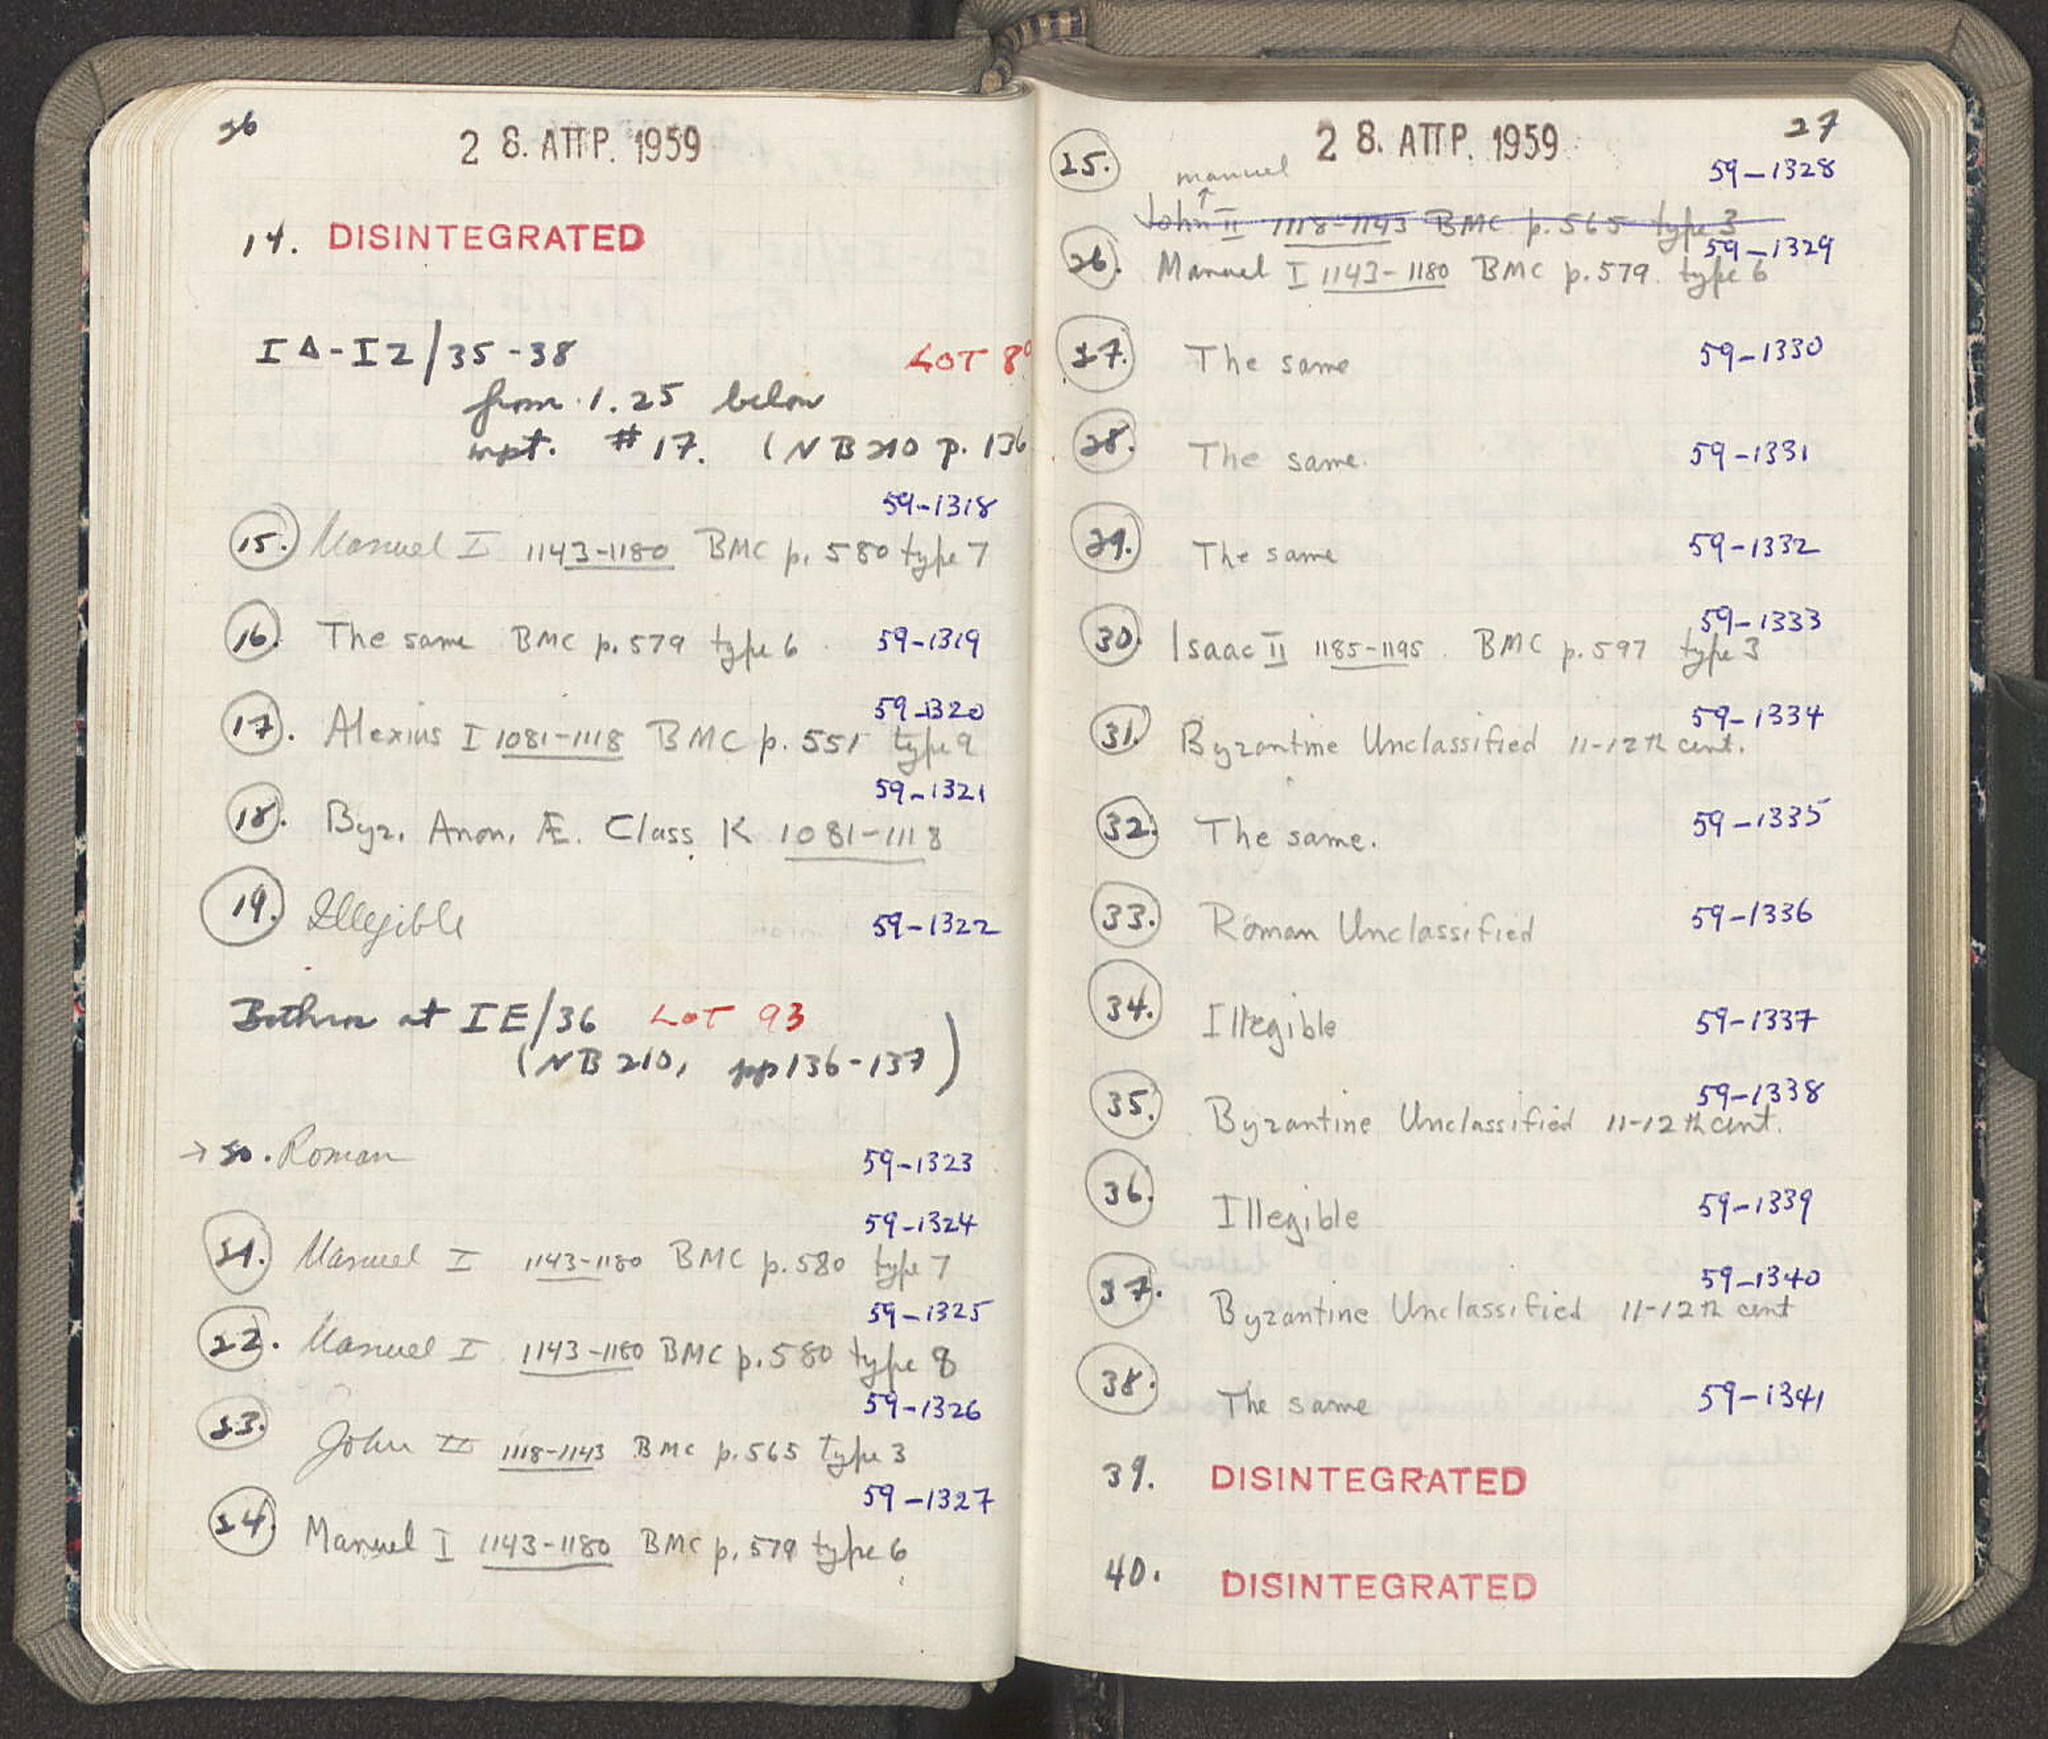 26
28. ΑΠΡ. 1959
14. DISINTEGRATED
ΙΔ-ΙΖ/35-38 LOT 8
from 1.25 below
wpt. #17. (NB 210 p. 136
59-1318
15. Manuel I 1143-1180 BMC p. 580 type 7
16. The same BMC p. 579 type 6 59-1319
59-1320
17. Alexius I 1081-1118 BMC p. 551 type 9
59-1321
18. Byz. Anon. Æ. Class K 1081-1118
19. Illegible 59-1322
Bothros at ΙΕ/36 LOT 93
(NB 210, pp 136-137)
→ 20. Roman 59-1323
59-1324
21. Manuel I 1143-1180 BMC p. 580 type 7
59-1325
22. Manuel I 1143-1180 BMC p. 580 type 8
59-1326
23. John II 1118-1143 BMC p. 565 type 3
59-1327
24. Manuel I 1143-1180 BMC p. 579 type 6
27
28. ΑΠΡ. 1959
25. manuel 59-1328
John II 1118-1143 BMC p. 565 type 3
59-1329
26. Manuel I 1143-1180 BMC p. 579 type 6
27. The same 59-1330
28. The same. 59-1331
29. The same 59-1332
59-1333
30. Isaac II 1185-1195. BMC p. 597 type 3
59-1334
31. Byzantine Unclassified 11-12th cent.
32. The same. 59-1335
33. Roman Unclassified 59-1336
34. Illegible 59-1337
59-1338
35. Byzantine Unclassified 11-12th cent.
36. Illegible 59-1339
59-1340
37. Byzantine Unclassified 11-12th cent
38. The same 59-1341
39. DISINTEGRATED
40. DISINTEGRATED